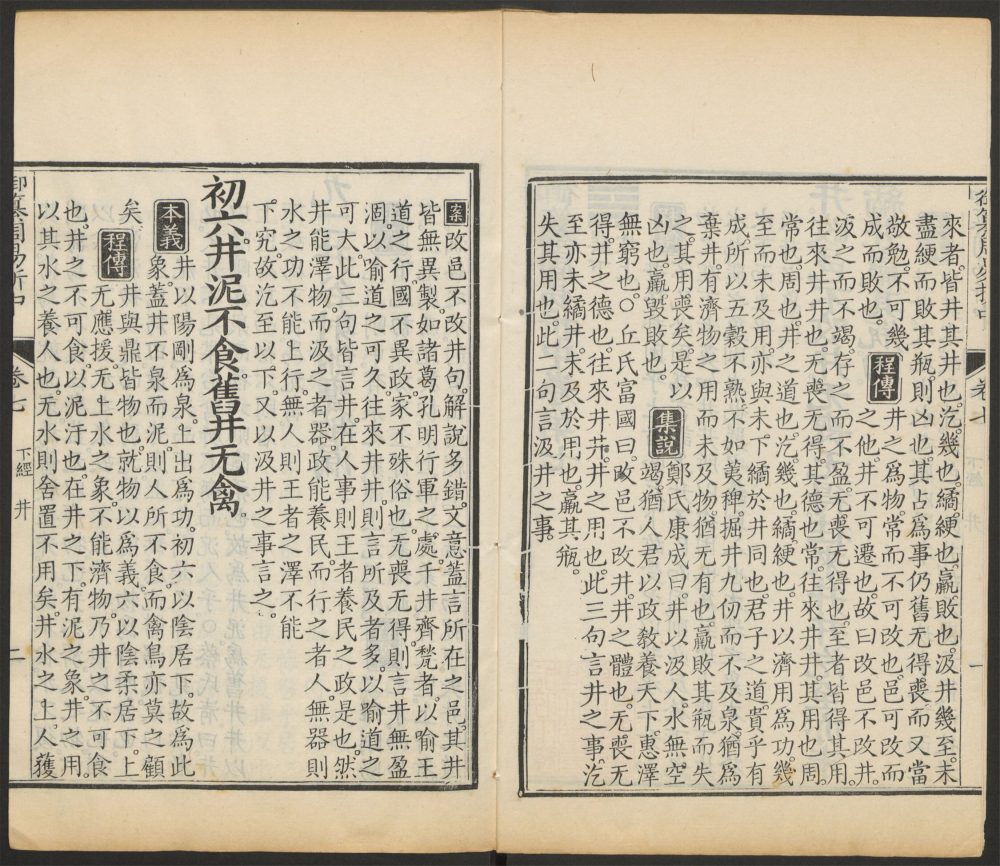 御纂周易折中
卷七
下經 井
一
來者皆井其井也。汔幾也。繘綆也。羸敗也。汲井幾至。未
盡綆而敗其瓶。則凶也。其占爲事仍舊。无得喪。而又當
敬勉。不可幾 程傳 井之爲物。常而不可改也。邑可改而
成而敗也。 之他。井不可遷也。故曰改邑不改井。
汲之而不竭。存之而不盈。无喪无得也。至者皆得其用。
往來井井也。无喪无得。其德也常。往來井井。其用也周。
常也。周也。井之道也。汔幾也。繘綆也。井以濟用爲功。幾
至而未及用。亦與未下繘於井同也。君子之道。貴乎有
成。所以五穀不熟。不如荑稗。掘井九仞而不及泉。猶爲
棄井。有濟物之用而未及物。猶无有也。羸敗其瓶而失
之。其用喪矣。是以 集說 鄭氏康成曰。井以汲人。水無空
凶也。羸毀敗也。 竭。猶人君以政敎養天下。惠澤
無窮也。○丘氏富國曰。改邑不改井。井之體也。无喪无
得。井之德也。往來井井。井之用也。此三句言井之事。汔
至亦未繘井。未及於用也。羸其瓶。
失其用也。此二句言汲井之事。
案 改邑不改井句。解說多錯。文意蓋言所在之邑。其井
皆無異製。如諸葛孔明行軍之處。千井齊甃者。以喻王
道之行。國不異政。家不殊俗也。无喪无得。則言井無盈
涸。以喻道之可久。往來井井。則言所及者多。以喻道之
可大。此三句皆言井。在人事則王者養民之政是也。然
井能澤物。而汲之者器。政能養民。而行之者人。無器則
水之功不能上行。無人則王者之澤不能
下究。故汔至以下。又以汲井之事言之。
初六井泥不食舊井无禽。
本義 井以陽剛爲泉。上出爲功。初六以陰居下。故爲此
象。蓋井不泉而泥。則人所不食。而禽鳥亦莫之顧
矣。 程傳 井與鼎皆物也。就物以爲義。六以陰柔居下。上
无應援。无上水之象。不能濟物。乃井之不可食
也。井之不可食。以泥汙也。在井之下。有泥之象。井之用。
以其水之養人也。无水則舍置不用矣。井水之上。人獲
御纂周易折中
卷七
下經 井
二